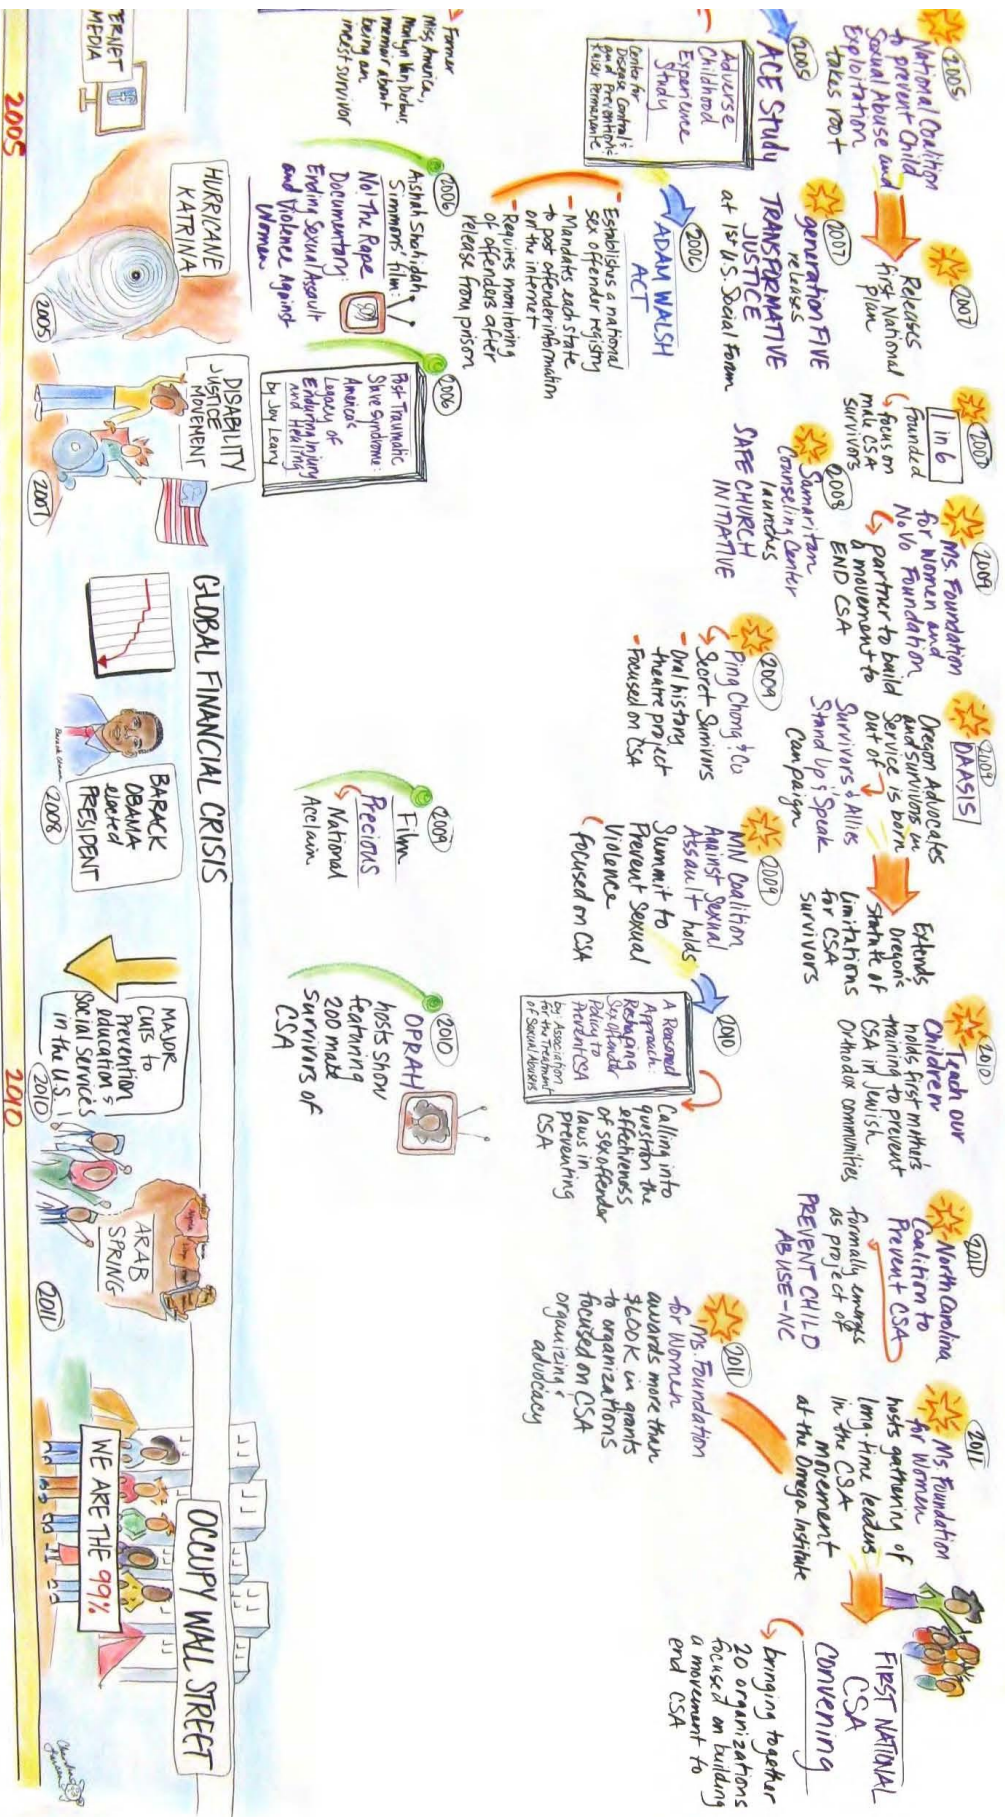 2005
National Coalition
to prevent Child
Sexual Abuse and
Exploitation
takes root
2007
Releases
first National
plan
2007
1 in 6
Founded
focus on
male CSA
survivors
2009
Ms. Foundation
for Women and
NoVo Foundation
partner to build
a movement to
END CSA
2009
OAASIS
Oregon Advocates
and Survivors in
Service is born
out of
Survivors & Allies
Stand Up & Speak
Campaign
Extends
Oregon's
statute of
limitations
for CSA
survivors
2010
Teach our
Children
holds first mother's
training to prevent
CSA in Jewish
Orthodox communities
2011
North Carolina
Coalition to
Prevent CSA
formally emerges
as project of
PREVENT CHILD
ABUSE-NC
2011
Ms Foundation
for Women
hosts gathering of
long-time leaders
in the CSA
movement
at the Omega Institute
FIRST NATIONAL
CSA
Convening
bringing together
20 organizations
focused on building
a movement to
end CSA
2005
ACE Study
Adverse
Childhood
Experience
Study
Center for
Disease Control's
and Prevention &
Kaiser Permanente
2007
generation FIVE
releases
TRANSFORMATIVE
JUSTICE
at 1st U.S. Social Forum
2008
Samaritan
Counseling Center
launches
SAFE CHURCH
INITIATIVE
2006
ADAM WALSH
ACT
- Establishes a national
sex offender registry
- Mandates each state
to post offender information
on the internet
- Requires monitoring
of offenders after
release from prison
2009
Ping Chong & Co
Secret Survivors
- Oral history
theatre project
- Focused on CSA
2009
MN Coalition
Against Sexual
Assault holds
Summit to
Prevent Sexual
Violence
Focused on CSA
2010
A Reasoned
Approach:
Reshaping
Sex Offender
Policy to
Prevent CSA
by Association
for the Treatment
of Sexual Abusers
Calling into
question the
effectiveness
of sex offender
laws in
preventing
CSA
2011
Ms. Foundation
for Women
awards more than
$600K in grants
to organizations
focused on CSA
organizing &
advocacy
Former
Miss America,
Marilyn Van Derbur,
memoir about
being an
incest survivor
2006
Aishah Shahidah
Simmons' film:
No! The Rape
Documentary:
Ending Sexual Assault
and Violence Against
Women
2006
Post Traumatic
Slave Syndrome:
America's
Legacy of
Enduring Injury
and Healing
by Joy Leary
2009
Film
Precious
National
Acclaim
2010
OPRAH
hosts show
featuring
200 male
survivors of
CSA
ERNET
MEDIA
HURRICANE
KATRINA
2005
DISABILITY
JUSTICE
MOVEMENT
2007
GLOBAL FINANCIAL CRISIS
BARACK
OBAMA
elected
PRESIDENT
2008
MAJOR
CUTS to
Prevention
education &
Social Services
in the U.S.
2010
ARAB
SPRING
2011
OCCUPY WALL STREET
WE ARE THE 99%
2005
2010